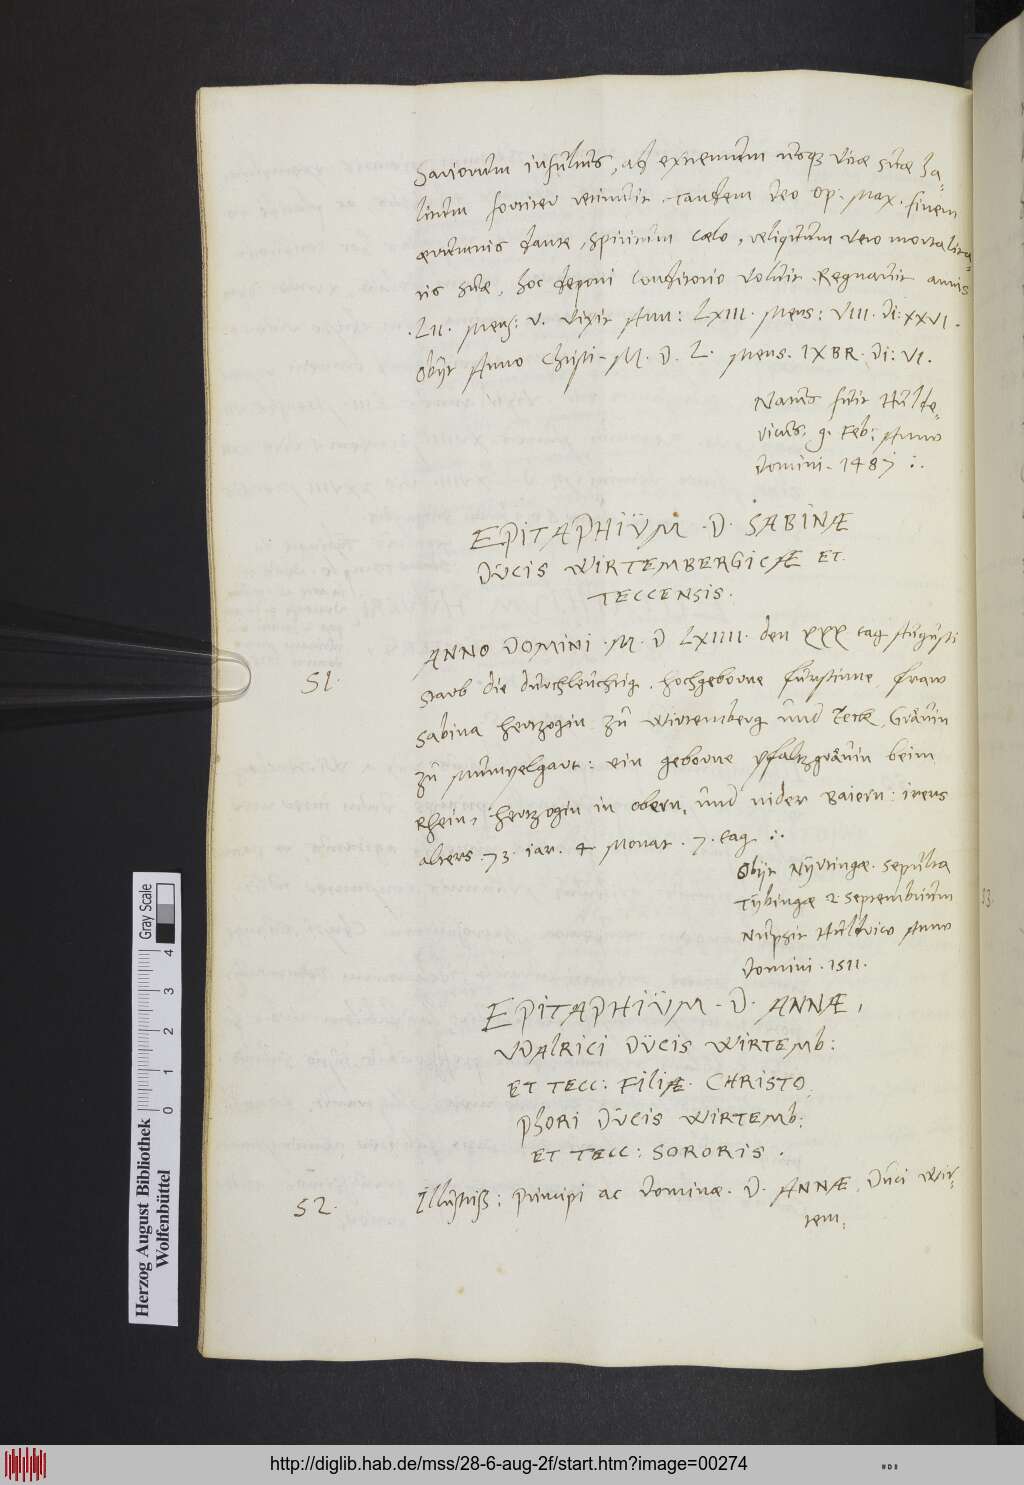 sariorum insultus, ad extremum usq; vitae suae ha-
litum fortiter retinuit. tandem deo Op. Max. finem
aerumnis dante, spiritum caelo, reliquum vero mortalita-
tis suae, hoc deponi conditorio voluit. Regnavit annis
.LII. Mens: V. Vixit Ann: LXIII. Mens: VIII. Di: XXVI.
Obijt Anno Christi. M. D. L. Mens. IXBR. Di: VI.
Natus fuit Hulde-
vicus: 9. Feb: Anno
Domini. 1487 :.
EPITAPHIUM .D. SABINÆ
DUCIS WIRTEMBERGICÆ ET.
TECCENSIS.
51.
ANNO DOMINI .M. D LXIIII. den XXX tag Augusti
Starb die durchleuchtig. hochgeborne furstinne, fraw
Sabina hertzogin zu Wirtemberg und Teck, Grävin
zu Mumpelgart: ein geborne Pfaltzgrävin beim
Rhein, hertzogin in obern, und nider Baiern: irers
alters .73. iar. 4 Monat. 7. tag :.
Obijt Nyrtingæ. Sepulta
Tybingæ 2 Septembrium
Nupsit Huldrico Anno
Domini. 1511.
EPITAPHIUM. D. ANNÆ,
VDALRICI DUCIS WIRTEMB:
ET TECC: FILIÆ. CHRISTO
PHORI DUCIS WIRTEMB:
ET TECC: SORORIS.
52.
Illustriß: Principi ac Dominæ. D. ANNÆ, Duci Wir-
tem,
83.
Herzog August Bibliothek
Wolfenbüttel
0 1 2 3 4
Gray Scale
http://diglib.hab.de/mss/28-6-aug-2f/start.htm?image=00274